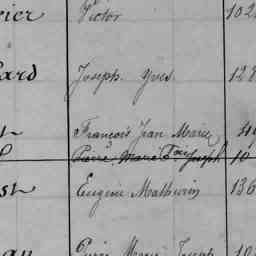 cier Victor 102
ard Joseph Yves 128
François Jean Marie
Pierre Marie Joseph 10
st Eugène Mathurin 136
Pierre Marie Joseph